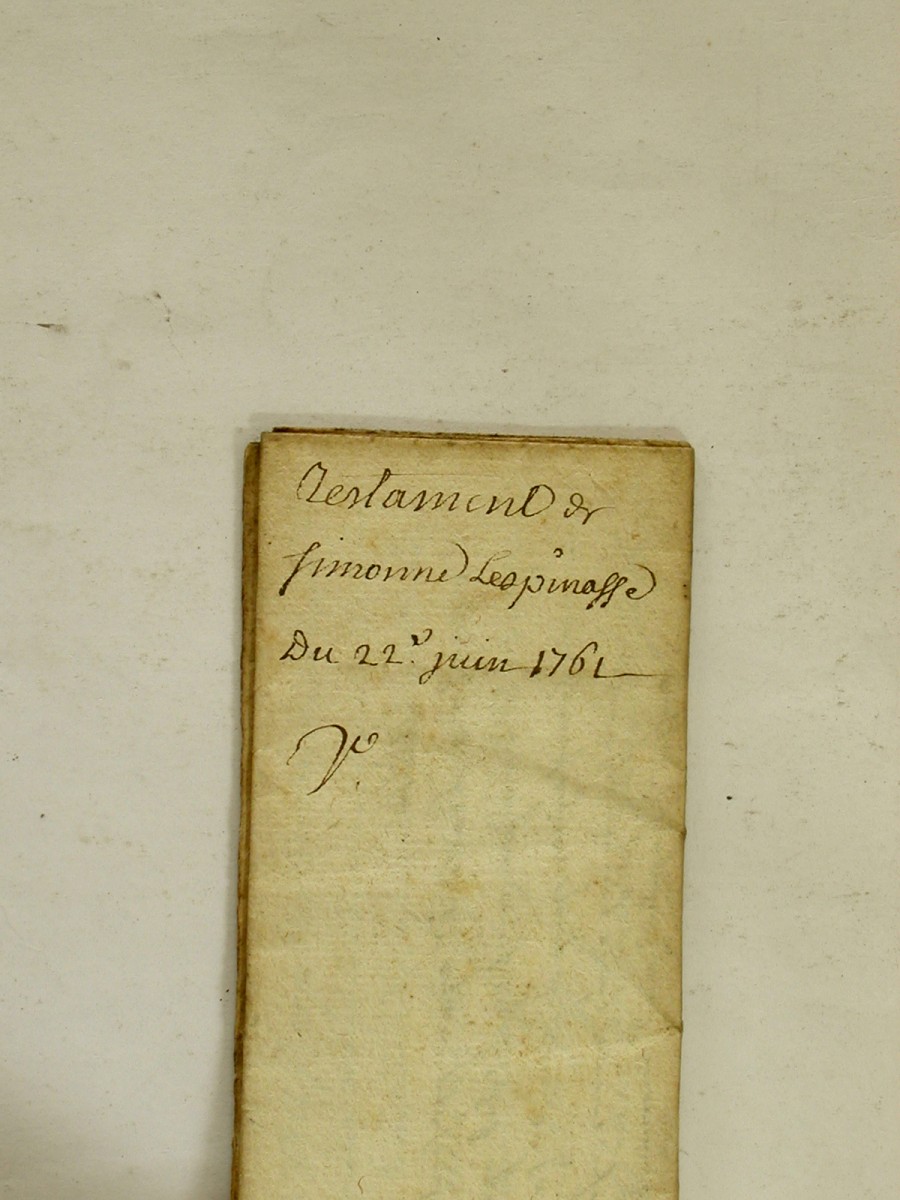 Testament de
simonne Lespinasse
Du 22e. juin 1761